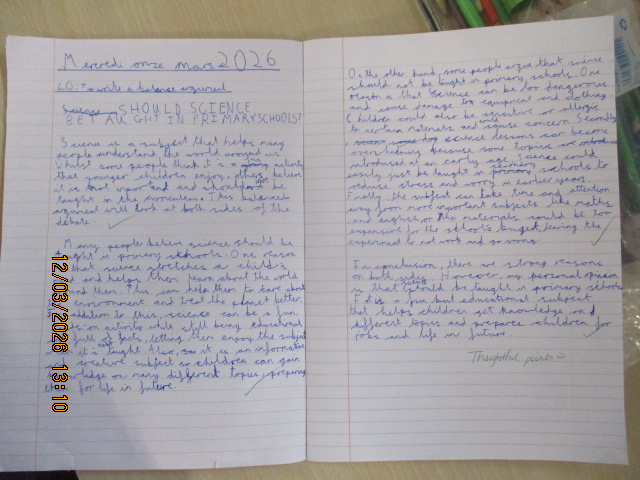 Mercredi onze mars 2026
LO: to write a balance argument
Science SHOULD SCIENCE
BE TAUGHT IN PRIMARY SCHOOLS?
Science is a subject that helps many
people understand the world around us.
Whilst some people think it is a activity
that younger children enjoy, others believe
it is not important and shouldn't be
taught in the curriculum. This balanced
argument will look at both sides of the
debate.
Many people believe science should be
taught in primary schools. One reason
that science stretches a child's
and helps them learn about the world
around them. This can help them to care about
environment and treat the planet better.
addition to this, science can be a fun
activity while still being educational
full of facts, letting them enjoy the subject
it is taught. Also, as it is an informative
and creative subject so children can gain
knowledge on many different topics, preparing
for life in future.
On the other hand, some people argue that science
should not be taught in primary schools. One
reason is that science can be too dangerous
and cause damage to equipment and clothing.
Children could also be sensitive or allergic
to certain materials and cause concern. Secondly
science lessons can become
overwhelming because some topics are
introduced at an early age. Science could
easily just be taught in secondary schools to
reduce stress and worry in earlier years.
Finally, the subject can take time and attention
away from more important subjects like maths
and english, or the materials could be too
expensive for the school's budget, leaving the
experiment to not work and go wrong.
In conclusion, there are strong reasons
on both sides. However, my personal opinion
is that it should be taught in primary schools.
It is a fun but educational subject
that helps children get knowledge on
different topics and prepares children for
jobs and life in future.
Thoughtful points
12/03/2026 13:10